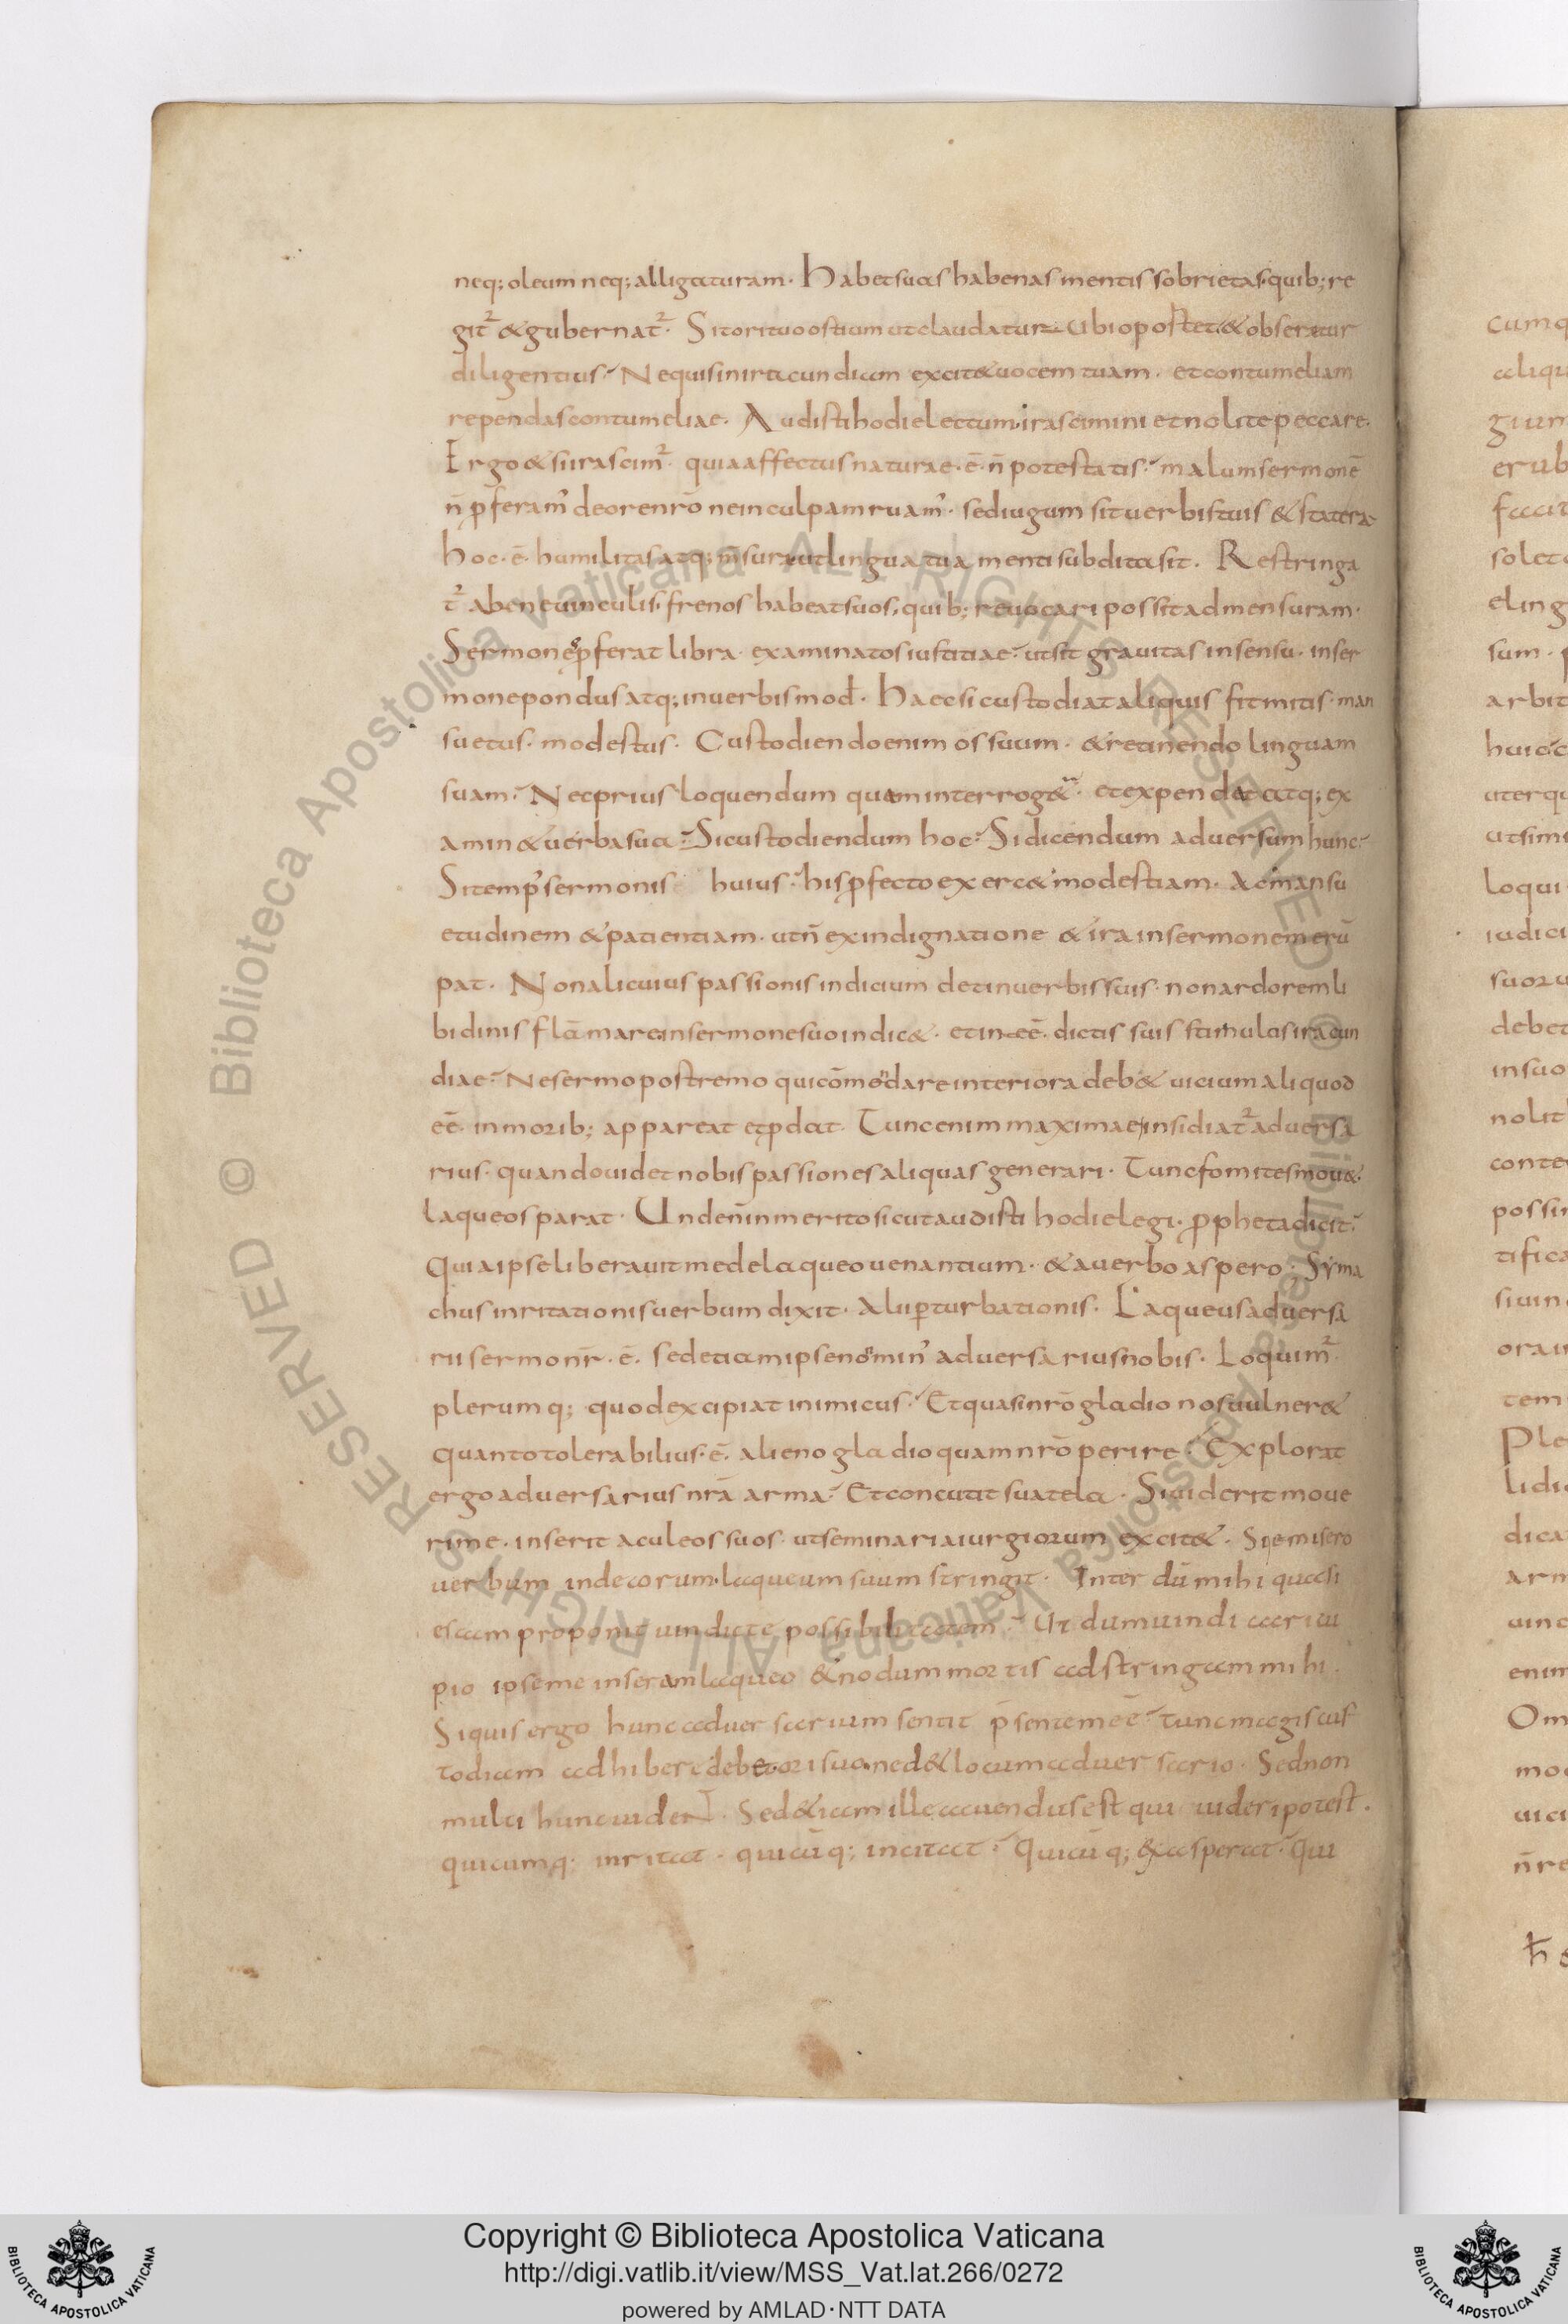 neq; oleum neq; alligaturam. Habet suas habenas mentis sobrietas. quib; re
git᷑ & gubernat᷑. Sit ori tuo ostium ut claudatur ubi oportet & obseretur
diligentius. Nequis in iracundiam excit& uocem tuam. et contumeliam
rependas contumeliae. Audisti hodie lectum. irascimini et nolite peccare.
Ergo & si irascim᷑. quia affectus naturae. ē. n̄ potestatis. malum sermonē
n̄ pferam' de ore nr̄o ne in culpam ruam'. sed iugum sit uerbis tuis & statera
hoc. ē. humilitas atq; m̄sura ut lingua tua menti subdita sit. Restringa
t᷑ abene uinculis. frenos habeat suos. quib; reuocari possit ad mensuram.
Sermones pferat libra examinatos iustitiae. ut sit grauitas in sensu. in ser
mone pondus atq; in uerbis mod'. Haec si custodiat aliquis fit mitis. man
suetus. modestus. Custodiendo enim os suum. & retinendo linguam
suam. Nec prius loquendum quam interrog&. et expendat atq; ex
amin& uerba sua. Si custodiendum hoc. Si dicendum aduersum hunc.
Si temp' sermonis huius. his pfecto exerc& modestiam. Ac mansu
etudinem & patientiam. ut n̄ ex indignatione & ira in sermonem erū
pat. Non alicuius passionis indicium det in uerbis suis. non ardorem li
bidinis flāmare in sermone suo indic&. et in eē. dictis suis stimulos iracun
diae. Ne sermo postremo qui cōmodare interiora deb& uicium aliquod
eē. in morib; appareat et pdat. Tunc enim maxime insidiat᷑ aduersa
rius. quando uidet nobis passiones aliquas generari. Tunc fomites mou&.
laqueos parat. Unde n̄ inmerito sicut audisti hodie legi. ppheta dicit.
Quia ipse liberauit me de laqueo uenantium. & a uerbo aspero. Syma
chus inritationis uerbum dixit. Alii pturbationis. Laqueus aduersa
rii sermo nr̄. ē. sed etiam ipse nō min' aduersarius nobis. Loquim᷑
plerumq; quod excipiat inimicus. Et quasi nr̄o gladio nos uulner&
quanto tolerabilius. ē. alieno gladio quam nr̄o perire. Explorat
ergo aduersarius nr̄a arma. Et concutit sua tela. Si uiderit moue
ri me. inserit aculeos suos. ut seminaria iurgiorum excit&. Si emisero
uerbum indecorum. laqueum suum stringit. Inter dū mihi quasi
escam proponit uindicte possibilitatem. Ut dum uindicari cu
pio ipse me inseram laqueo & nodum mortis adstringam mihi.
Siquis ergo hunc aduersarium sentit p̄sentem eē. tunc magis cus
todiam adhibere debet ori suo. ne d& locum aduersario. Sed non
multi hunc uident. Sed & iam ille cauendus est qui uideri potest.
quicumq; inritat. quicūq; incitat. Quicūq; exasperat. Qui
Copyright © Biblioteca Apostolica Vaticana
http://digi.vatlib.it/view/MSS_Vat.lat.266/0272
powered by AMLAD·NTT DATA